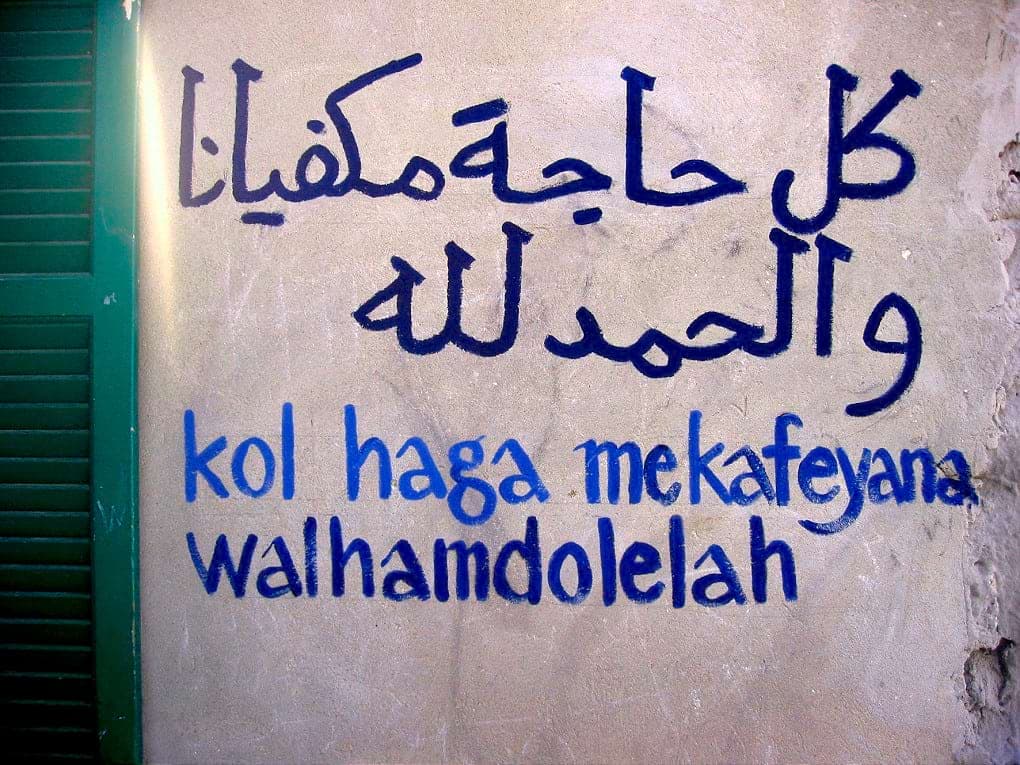 كل حاجة مكفيانا
والحمد لله
kol haga mekafeyana
walhamdolelah